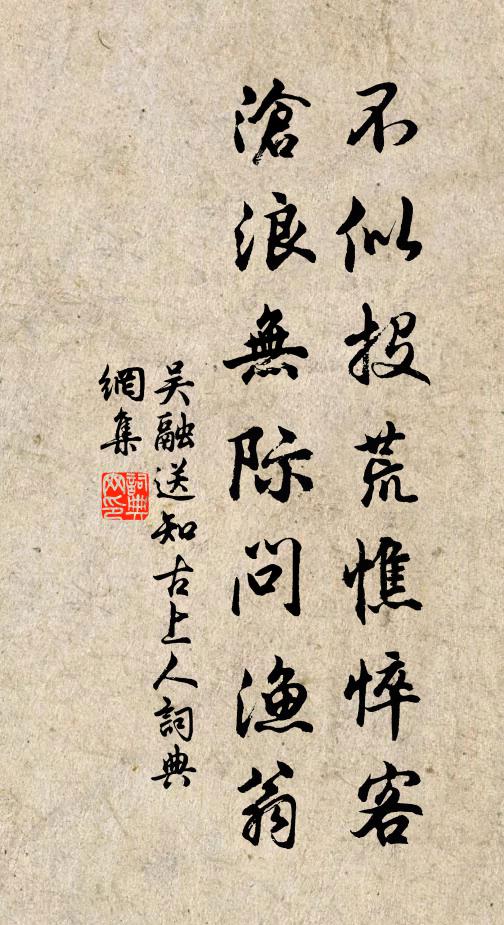 不似投荒憔悴客
滄浪無际問漁翁
吴融送知古上人詞典
網集
詞典
網印